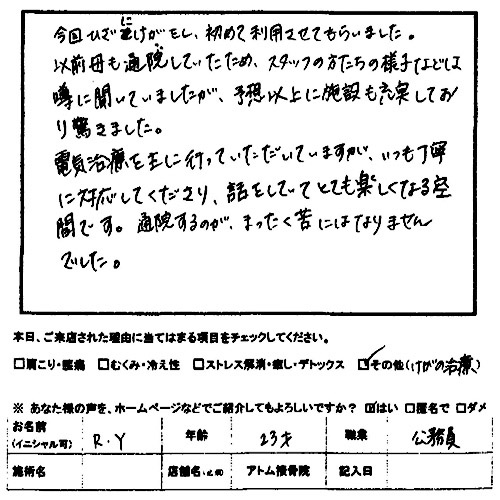 今回ひざにけがをし、初めて利用させてもらいました。
以前母も通院していたため、スタッフの方たちの様子などは
噂に聞いていましたが、予想以上に施設も充実してお
り驚きました。
電気治療を主に行っていただいていますが、いつも丁寧
に対応してくださり、話をしていてとても楽しくなる空
間です。通院するのが、まったく苦にはなりません
でした。
本日、ご来店された理由に当てはまる項目をチェックしてください。
□肩こり・腰痛 □むくみ・冷え性 □ストレス解消・癒し・デトックス ☑その他(けがの治療)
※ あなた様の声を、ホームページなどでご紹介してもよろしいですか? ☑はい □匿名で □ダメ
お名前(イニシャル可) R.Y 年齢 23才 職業 公務員
施術名 店舗名 アトム接骨院 記入日